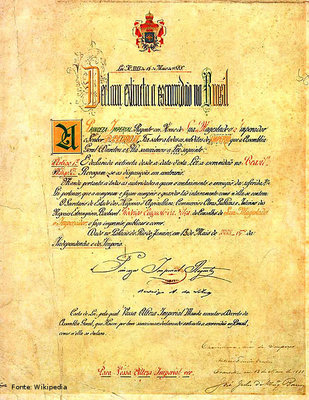 Declara extincta a escravidão no Brasil
A Princeza Imperial Regente em Nome de Sua Magestade o Imperador
Senhor D. Pedro II, Faz saber a todos os subditos do Imperio que a Assembléa
Geral
Artigo 1º É declarada extincta desde a data d'esta Lei a escravidão no Brazil.
Revogam-se as disposições em contrario.
Manda portanto a todas as autoridades a quem o conhecimento e execução da referida Lei
O Secretario de Estado dos Negocios d'Agricultura, Commercio e Obras Publicas e Interino dos
Negocios Estrangeiros, Bacharel Rodrigo Augusto da Silva do Conselho de Sua Magestade
o Imperador, o faça imprimir, publicar e correr.
Dado no Palacio do Rio de Janeiro, em 13 de Maio de 1888, 67º da
Independencia e do Imperio.
Princeza Imperial Regente
Rodrigo A. da Silva
Carta de Lei, pela qual Vossa Alteza Imperial Manda executar o Decreto da
Assembléa Geral, que Houve por bem sanccionar declarando extincta a escravidão no Brazil,
como n'ella se declara.
Para Vossa Alteza Imperial ver.
Fonte: Wikipedia